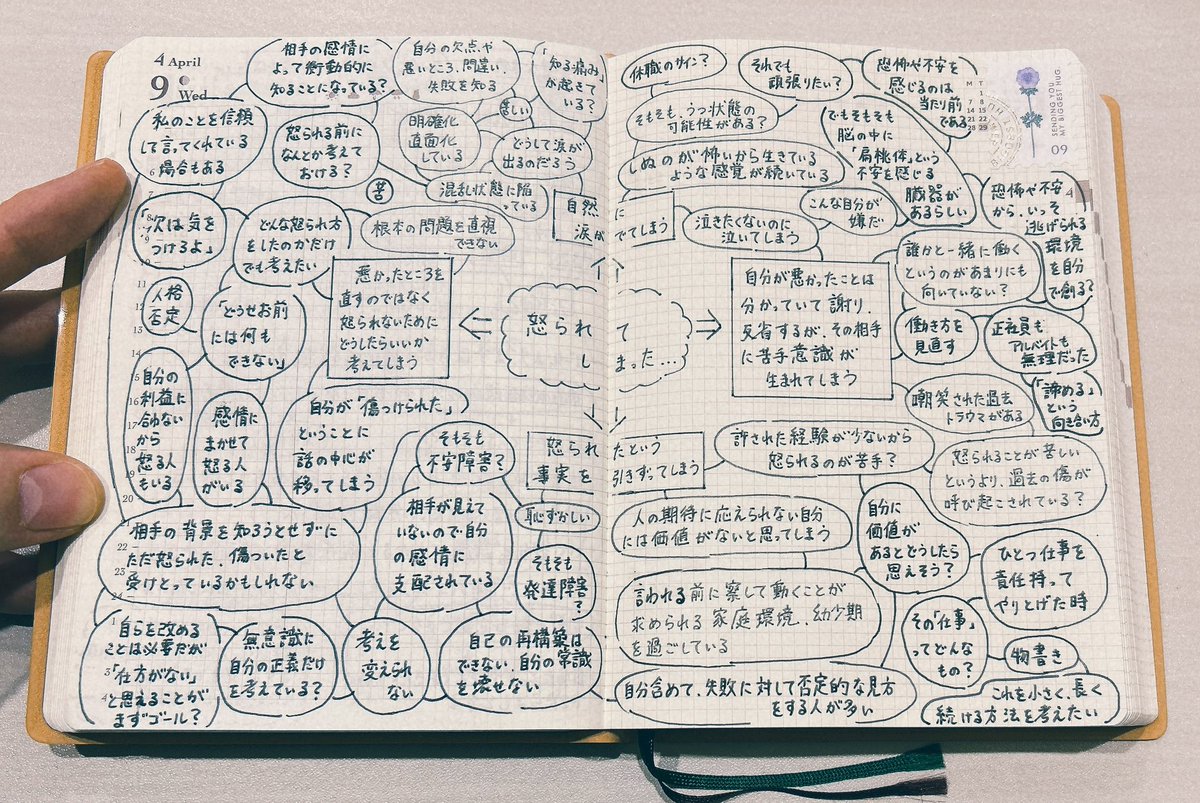 4 April
9
Wed
相手の感情に
よって衝動的に
知ることになっている?
自分の欠点や
悪いところ、間違い、
失敗を知る
「知る痛み」
が起きて
いる?
苦しい
私のことを信頼
して言ってくれている
場合もある
怒られる前に
なんとか考えて
おける?
明確化
直面化
している
どうして涙が
出るのだろう
苦
混乱状態に陥
っている
自然
涙が
「次は気を
つけるよ」
どんな怒られ方
をしたのかだけ
でも考えたい
根本の問題を直視
できない
悪かったところを
直すのではなく
怒られないために
どうしたらいいか
考えてしまう
人格
否定
「どうせお前
には何も
できない」
自分の
利益に
合わない
から
怒る人
もいる
感情に
まかせて
怒る人
がいる
自分が「傷つけられた」
ということに
話の中心が
移ってしまう
そもそも
不安障害?
怒られ
事実を
恥ずかしい
相手の背景を知ろうとせずに
ただ怒られた、傷ついたと
受けとっているかもしれない
相手が見えて
いないので自分
の感情に
支配されている
そもそも
発達障害
?
自らを改める
ことは必要だが
「仕方がない」
と思えることが
まずゴール?
無意識に
自分の正義だけ
を考えている?
考えを
変えられ
ない
自己の再構築は
できない、自分の常識
を壊せない
怒られ
し
て
まった…
休職のサイン?
それでも
頑張りたい?
恐怖や不安を
感じるのは
当り前
である
M T
1
7 8
14 15
21 22
28 29
SENDING YOU
MY BIGGEST HUG
09
4
そもそも、うつ状態の
可能性がある?
でもそもそも
脳の中に
「扁桃体」という
不安を感じる
臓器が
あるらしい
しぬのが怖いから生きている
ような感覚が続いている
に
でてしまう
泣きたくないのに
泣いてしまう
こんな自分が
嫌だ
恐怖や不安
から、いっそ
逃げられる
環境
を自分
で創る?
誰かと一緒に働く
というのがあまりにも
向いていない?
自分が悪かったことは
分かっていて謝り、
反省するが、その相手
に苦手意識が
生まれてしまう
働き方を
見直す
正社員も
アルバイトも
無理だった
嘲笑された過去
トラウマがある
「諦める」
という
向き合い方
たという
引きずってしまう
許された経験が少ないから
怒られるのが苦手?
怒られることが苦しい
というより、過去の傷が
呼び起こされている?
人の期待に応えられない自分
には価値がないと思ってしまう
自分に
価値が
あるとどうしたら
思えそう?
ひとつ仕事を
責任持って
やりとげた時
言われる前に察して動くことが
求められる家庭環境、幼少期
を過ごしている
その「仕事」
ってどんな
もの?
物書き
自分含めて、失敗に対して否定的な見方
をする人が多い
これを小さく、長く
続ける方法を考えたい